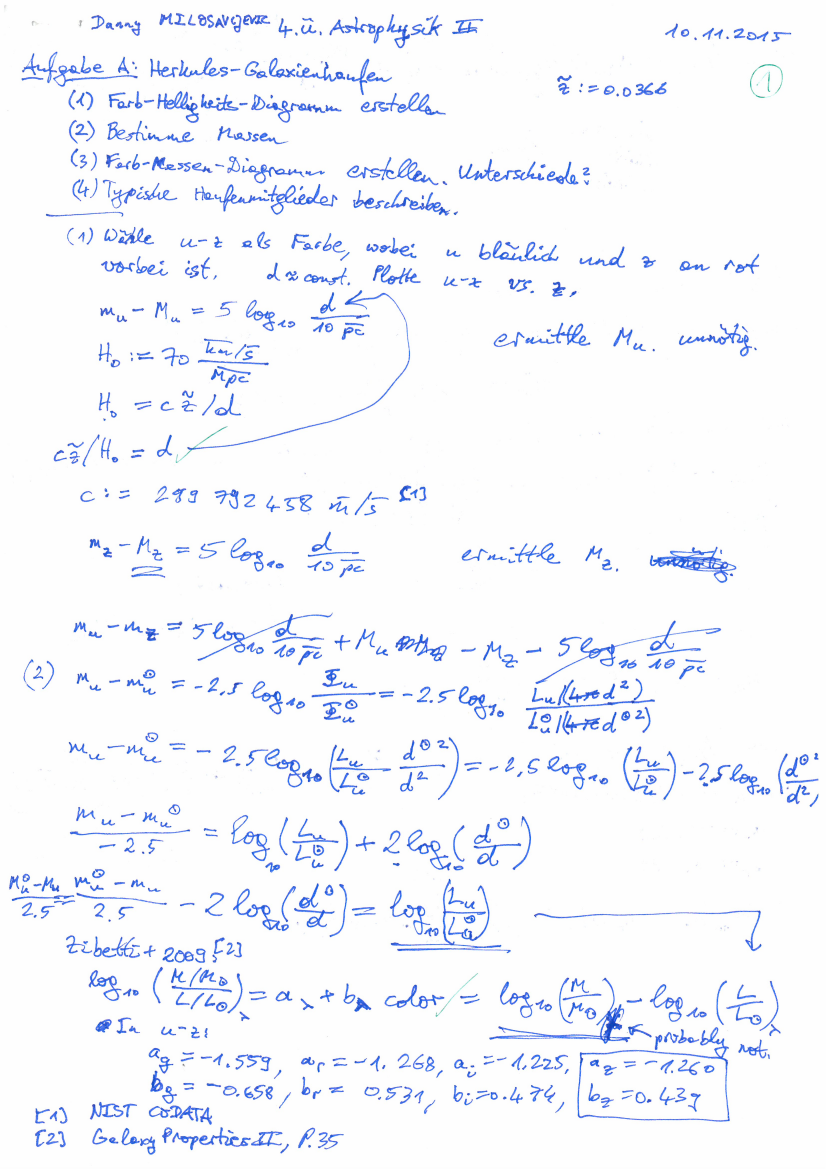 Danny MILOSAVLJEVIC 4. Ü. Astrophysik II 10.11.2015
Aufgabe A: Herkules-Galaxienhaufen z̃ := 0.0366 (1)
(1) Farb-Helligkeits-Diagramm erstellen
(2) Bestimme Massen
(3) Farb-Massen-Diagramm erstellen. Unterschiede?
(4) Typische Haufenmitglieder beschreiben.
(1) Wähle u-z als Farbe, wobei u bläulich und z an rot
vorbei ist. d ≈ const. Plotte u-z vs. z.
m_u - M_u = 5 log₁₀ d/(10 pc)
ermittle M_u. unnötig.
H₀ := 70 (km/s)/Mpc
H₀ = c z̃/d
c z̃/H₀ = d ✓
c := 299 792 458 m/s [1]
m_z - M_z = 5 log₁₀ d/(10 pc) ermittle M_z. unnötig.
m_u - m_z = 5 log₁₀ d/(10 pc) + M_u - M_z - 5 log₁₀ d/(10 pc)
(2) m_u - m_u^⊙ = -2.5 log₁₀ Φ_u/Φ_u^⊙ = -2.5 log₁₀ (L_u/(4π d²))/(L_u^⊙/(4π d^⊙²))
m_u - m_u^⊙ = -2.5 log₁₀ (L_u/L_u^⊙ d^⊙²/d²) = -2,5 log₁₀ (L_u/L_u^⊙) - 2.5 log₁₀ (d^⊙²/d²)
(m_u - m_u^⊙)/(-2.5) = log₁₀ (L_u/L_u^⊙) + 2 log₁₀ (d^⊙/d)
(M_u^⊙ - M_u)/2.5 = (m_u^⊙ - m_u)/2.5 - 2 log₁₀ (d^⊙/d) = log₁₀ (L_u/L_u^⊙)
Zibetti+ 2009: [2]
log₁₀ ((M/M_⊙)/(L/L_⊙))_λ = a_λ + b_λ color ✓ = log₁₀ (M/M_⊙) - log₁₀ (L/L_⊙)_λ
probably not.
In u-z:
a_g = -1.559, a_r = -1.268, a_i = -1.225, a_z = -1.260
b_g = -0.658, b_r = 0.531, b_i = 0.474, b_z = 0.439
[1] NIST CODATA
[2] Galaxy Properties II, P.35